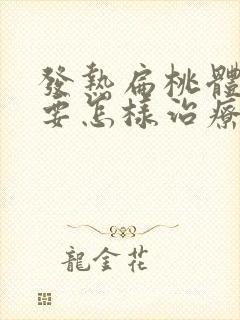 發熱扁桃體
要怎樣治療
龍金花